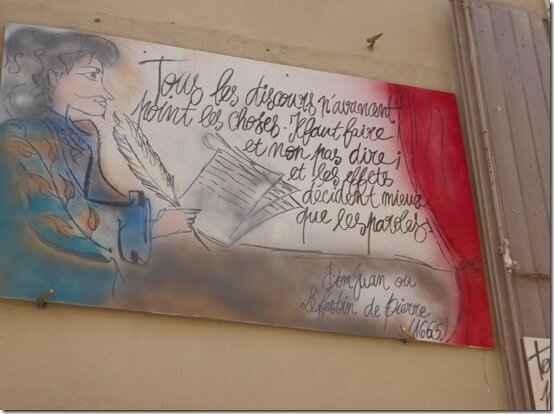 Tous les discours n'avancent
point les choses. Il faut faire
et non pas dire ;
et les effets
décident mieux
que les paroles.
Dom Juan ou
Le festin de Pierre
(1665)